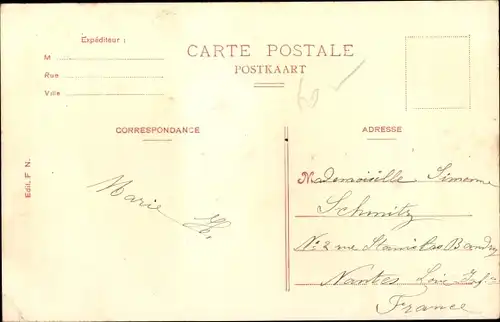 Expéditeur :
M
Rue
Ville
CARTE POSTALE
POSTKAART
CORRESPONDANCE
ADRESSE
Edit. F. N.
Marie
H.
Mademoiselle Simonne
Schmitz
N° 2 rue Stanislas Baudry
Nantes Loire Inf.re
France